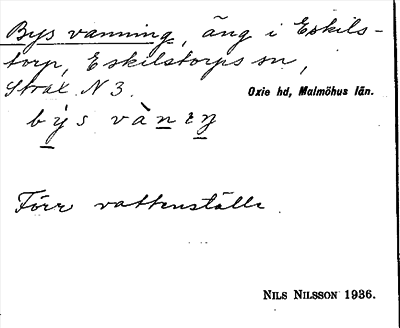 Bys vanning, äng i Eskils-
torp, Eskilstorps sn,
Strax N 3. Oxie hd, Malmöhus län.
Förr vattenställe.
NILS NILSSON 1936.